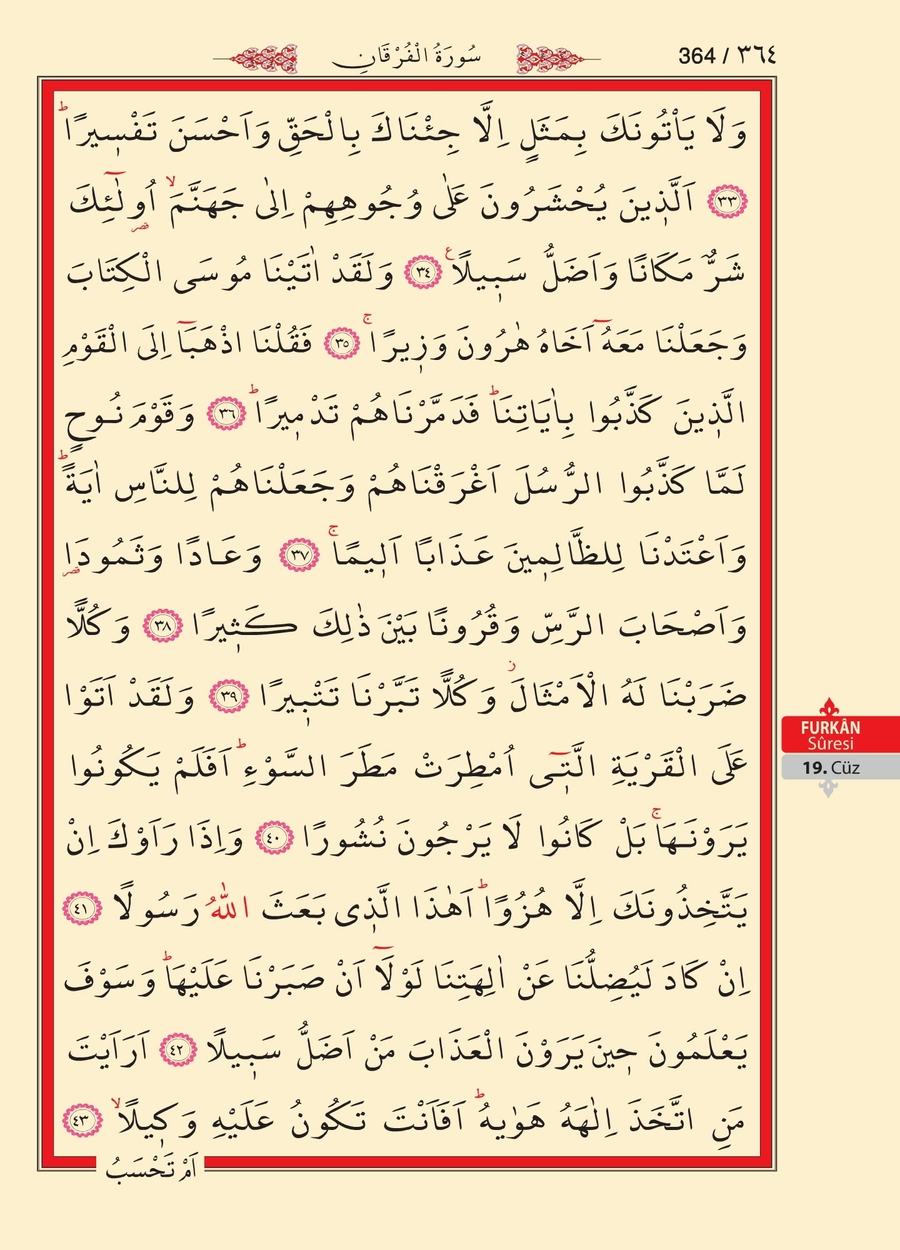 سُورَةُ الْفُرْقَانِ
364 / ٣٦٤
وَلَا يَأْتُونَكَ بِمَثَلٍ اِلَّا جِئْنَاكَ بِالْحَقِّ وَاَحْسَنَ تَفْس۪يرًاۜ
﴿٣٣﴾ اَلَّذ۪ينَ يُحْشَرُونَ عَلٰى وُجُوهِهِمْ اِلٰى جَهَنَّمَۙ اُو۬لٰٓئِكَ
شَرٌّ مَكَانًا وَاَضَلُّ سَب۪يلًا۟ ﴿٣٤﴾ وَلَقَدْ اٰتَيْنَا مُوسَى الْكِتَابَ
وَجَعَلْنَا مَعَهُٓ اَخَاهُ هٰرُونَ وَز۪يرًاۚ ﴿٣٥﴾ فَقُلْنَا اذْهَبَٓا اِلَى الْقَوْمِ
الَّذ۪ينَ كَذَّبُوا بِاٰيَاتِنَاۜ فَدَمَّرْنَاهُمْ تَدْم۪يرًاۜ ﴿٣٦﴾ وَقَوْمَ نُوحٍ
لَمَّا كَذَّبُوا الرُّسُلَ اَغْرَقْنَاهُمْ وَجَعَلْنَاهُمْ لِلنَّاسِ اٰيَةًۜ
وَاَعْتَدْنَا لِلظَّالِم۪ينَ عَذَابًا اَل۪يمًاۚ ﴿٣٧﴾ وَعَادًا وَثَمُودَا۬
وَاَصْحَابَ الرَّسِّ وَقُرُونًا بَيْنَ ذٰلِكَ كَث۪يرًا ﴿٣٨﴾ وَكُلًّا
ضَرَبْنَا لَهُ الْاَمْثَالَۘ وَكُلًّا تَبَّرْنَا تَتْب۪يرًا ﴿٣٩﴾ وَلَقَدْ اَتَوْا
عَلَى الْقَرْيَةِ الَّت۪ٓي اُمْطِرَتْ مَطَرَ السَّوْءِۜ اَفَلَمْ يَكُونُوا
يَرَوْنَهَاۚ بَلْ كَانُوا لَا يَرْجُونَ نُشُورًا ﴿٤٠﴾ وَاِذَا رَاَوْكَ اِنْ
يَتَّخِذُونَكَ اِلَّا هُزُوًاۜ اَهٰذَا الَّذ۪ي بَعَثَ اللّٰهُ رَسُولًا ﴿٤١﴾
اِنْ كَادَ لَيُضِلُّنَا عَنْ اٰلِهَتِنَا لَوْلَٓا اَنْ صَبَرْنَا عَلَيْهَاۜ وَسَوْفَ
يَعْلَمُونَ ح۪ينَ يَرَوْنَ الْعَذَابَ مَنْ اَضَلُّ سَب۪يلًا ﴿٤٢﴾ اَرَاَيْتَ
مَنِ اتَّخَذَ اِلٰهَهُ هَوٰيهُۜ اَفَاَنْتَ تَكُونُ عَلَيْهِ وَك۪يلًاۙ ﴿٤٣﴾
اَمْ تَحْسَبُ
FURKÂN
Sûresi
19. Cüz